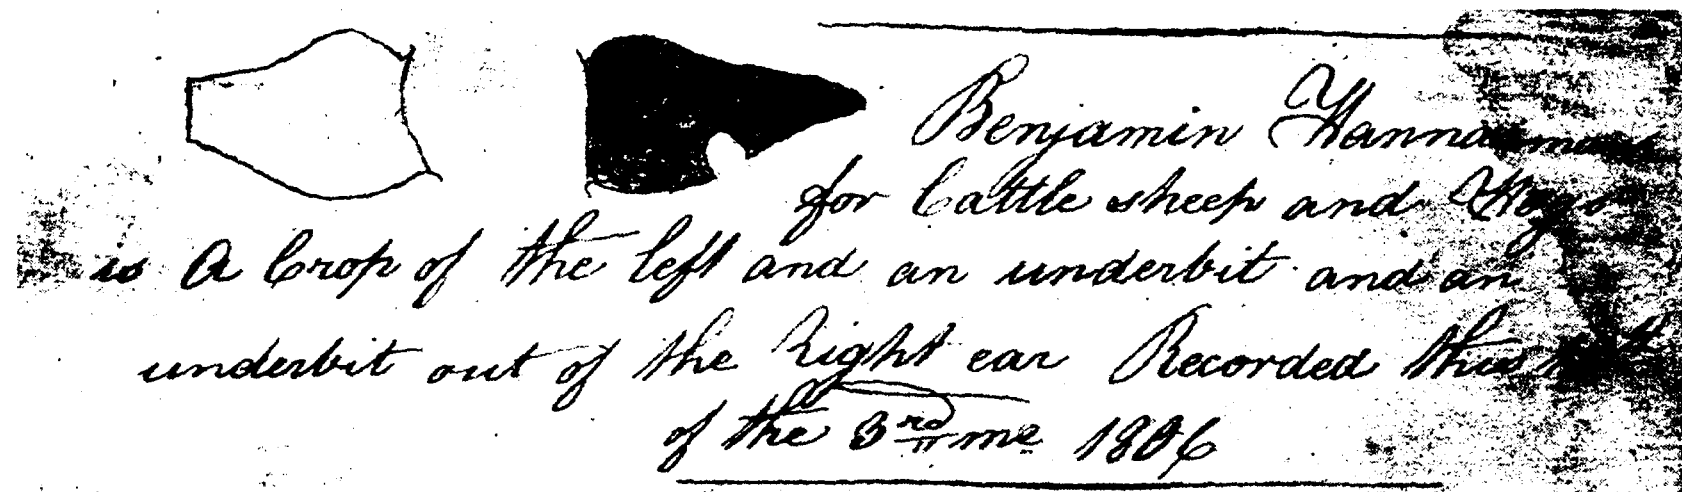 Benjamin Hannaman
for Cattle sheep and Hogs
is A Crop of the left and an underbit and an
underbit out of the Right ear Recorded this
of the 3rd mo 1836